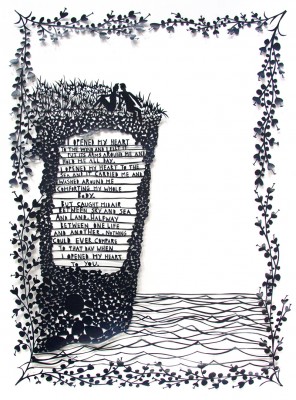 I OPENED MY HEART
TO THE WIND AND IT
PUT ITS ARMS AROUND ME AND
HOLD ME ALL DAY.
I OPENED MY HEART TO THE
SEA AND IT CARRIED ME AND
WASHED AROUND ME
COMFORTING MY WHOLE
BODY.
BUT CAUGHT MIDAIR
BETWEEN SKY AND SEA
AND LAND, HALFWAY
BETWEEN ONE LIFE
AND ANOTHER, NOTHING
COULD EVER COMPARE
TO THAT DAY WHEN
I OPENED MY HEART
TO YOU.